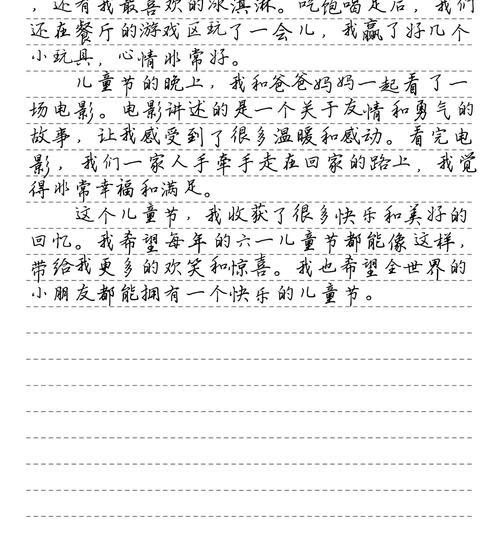 ，还有我最喜欢的冰淇淋。吃饱喝足后，我们
还在餐厅的游戏区玩了一会儿，我赢了好几个
小玩具，心情非常好。
儿童节的晚上，我和爸爸妈妈一起看了一
场电影。电影讲述的是一个关于友情和勇气的
故事，让我感受到了很多温暖和感动。看完电
影，我们一家人手牵手走在回家的路上，我觉
得非常幸福和满足。
这个儿童节，我收获了很多快乐和美好的
回忆。我希望每年的六一儿童节都能像这样，
带给我更多的欢笑和惊喜。我也希望全世界的
小朋友都能拥有一个快乐的儿童节。